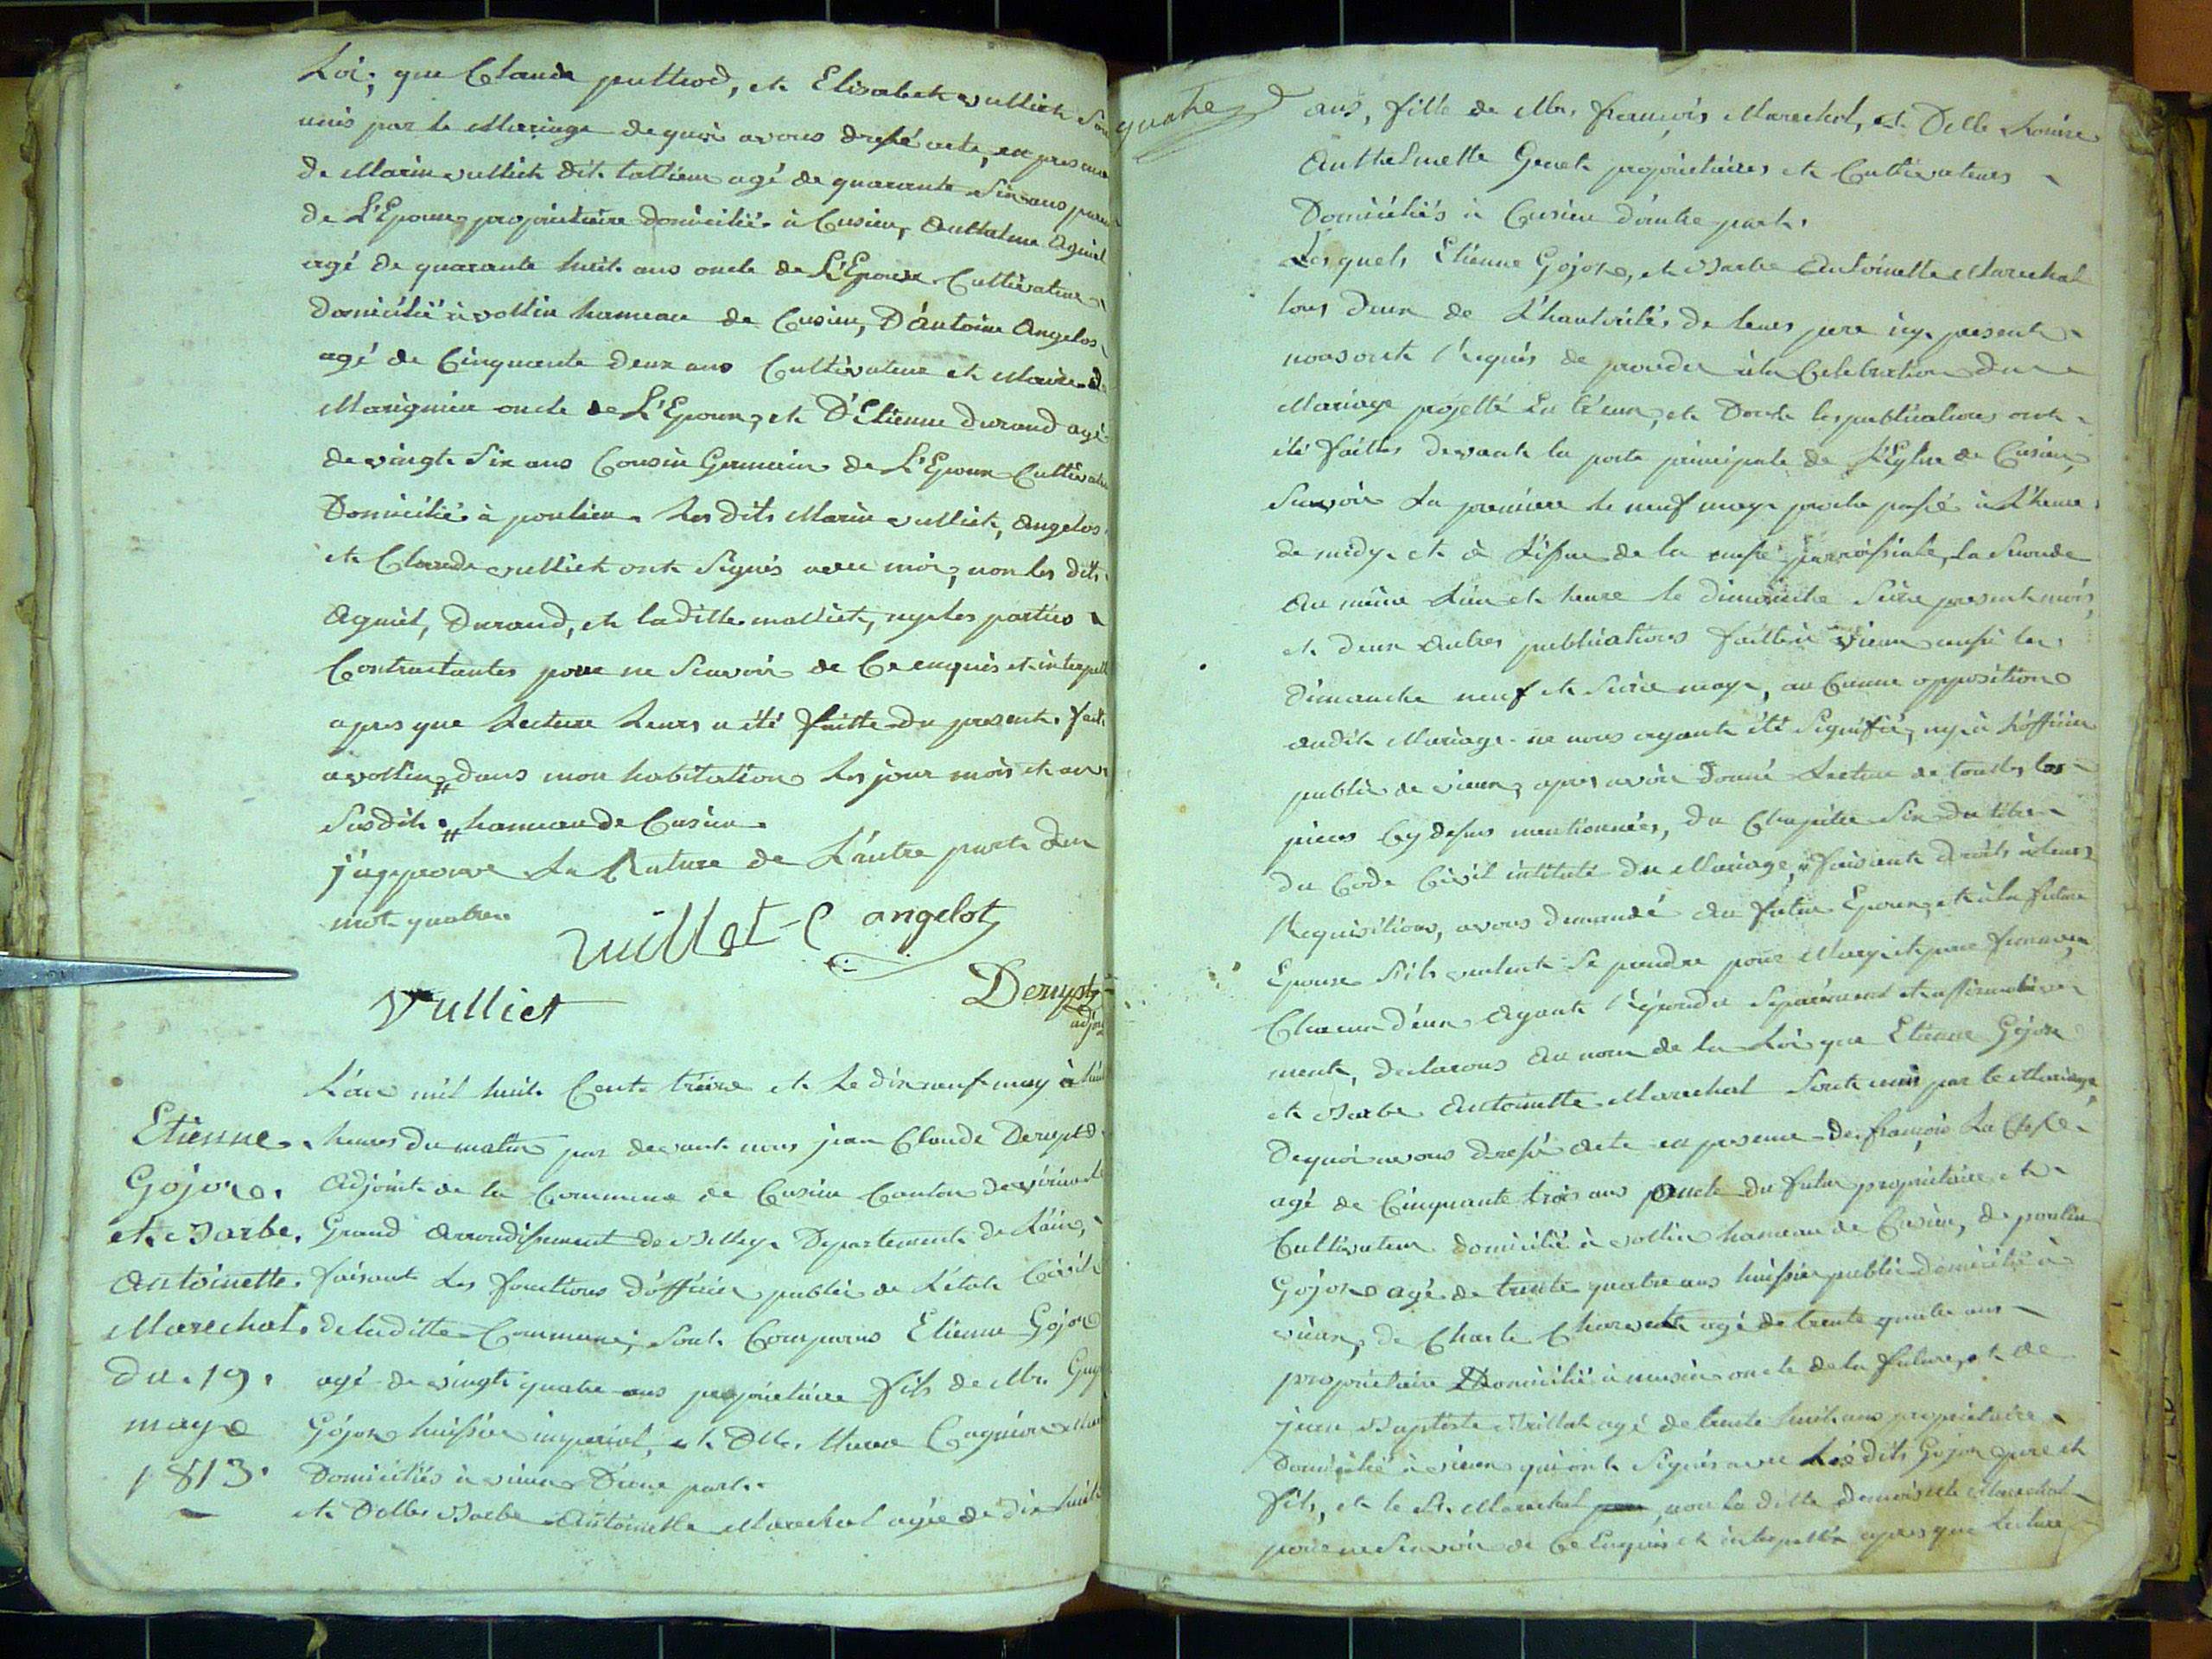 Loi; que Claude puthod, et Elisabeth vulliet sont
unis par le Mariage de quoi avons dressé acte, en presence
de Marin vulliet dit tallien agé de quarante six ans parent
de L'Epouse, proprietaire domicilié à Cusieu, Anthelme Aguiet
agé de quarante huit ans oncle de L'Epoux Cultivateur
domicilié à vollien hameau de Cusieu, D'Antoine Angelos
agé de Cinquante deux ans Cultivateur et Maire de
Marignieu oncle de L'Epoux, et D'Etienne Durand agé
de vingt six ans Cousin Germain de L'Epoux Cultivateur
Domicilié à poulieu. Les dits Marin vulliet, Angelos
et Claude vulliet ont signés avec moi, non les dits
Aguiet, Durand, et la ditte mollict, ny les parties
Contractantes pour ne Scavoir de Ce enquis et interpellé
apres que Lecture Leurs a été faitte du present. fait
a vollien # dans mon habitation Les jour mois et an
Susdit. # hameau de Cusieu
j'approuve La Rature de L'autre part d'un
mot quatre
vuillet C angelot
Vulliet Derupt
adjoint
Etienne
Gojoz.
et Barbe.
Antoinette.
Marechal.
du. 19.
may
1813.
L'an mil huit Cent treize et Le dix neuf may à huit
heures du matin par devant nous jean Claude Derupt
Adjoint de la Commune de Cusieu Canton de virieu le
Grand Arrondissement de Belley Departement de L'ain,
faisant Les fonctions d'officier public de L'état Civil
de laditte Commune; sont Comparus Etienne Gojoz
agé de vingt quatre ans proprietaire fils de Mr. Guy
Gojoz huissier imperial, et Dlle.
Domiciliés à vieux D'une part.
et Delle Barbe Antoinette Marechal agée de dix huit
quatre
ans, fille de Mr. françois Marechal, et Delle Louise
Anthelmette Genet proprietaires et Cultivateurs
Domiciliés à Cusieu d'autre part.
Lesquels Etienne Gojoz, et Barbe Antoinette Marechal
tous deux de L'hautorité de leurs pere icy present
nous ont Requis de proceder à la Celebration du
Mariage projetté Entr'eux, et Dont les publications ont
été faittes devant la porte principale de L'Eglise de Cusieu,
Scavoir La premiere le neuf may proche passé à L'heure
de midy et à L'issue de la messe parroissiale, la Seconde
Au même Lieu et heure le dimanche Seize present mois
et deux Autres publications faittes à vieux aussi les
Dimanche neuf et Seize may, au Cunne opposition
audit Mariage ne nous ayant été Signifiée, ny à L'officier
public de vieux, apres avoir Donné Lecture de toutes les
pieces Cy dessus mentionnées, du Chapitre Six du titre
du Code Civil intitulé du Mariage, faisant droit à leurs
Requisitions, avons demandé au futur Epoux, et à la future
Epouse S'ils veulent Se prendre pour Mary et pour femme,
Chacun d'eux Ayant Répondu Séparément et affirmative
ment, declarons Au nom de la Loi que Etienne Gojoz
et Barbe Antoinette Marechal Sont unis par le Mariage,
Dequoi avons dressé Acte en presence de françois
agé de Cinquante trois ans oncle du futur proprietaire et
Cultivateur domicilié à vollien hameau de Cusieu, de
Gojoz agé de trente quatre ans huissier public domicilié à
vieux, de Charle Charvet agé de trente quatre ans
proprietaire Domicilié à oncle de la future, et de
jean Baptiste Brillat agé de trente huit ans proprietaire
Domicilié à vieux qui ont Signés avec Lesdits Gojoz pere et
fils, et le Sr. Marechal non la ditte demoiselle Marechal
pour ne Scavoir de Ce Enquis et interpellée apres que Lecture